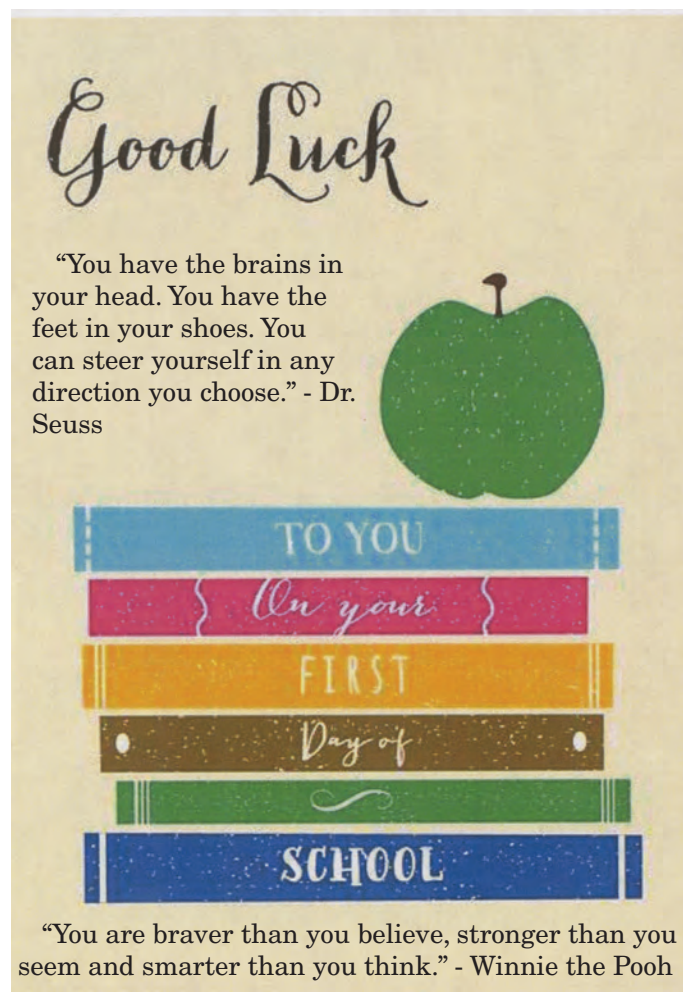 Good Luck
“You have the brains in
your head. You have the
feet in your shoes. You
can steer yourself in any
direction you choose.” - Dr.
Seuss
TO YOU
On your
FIRST
Day of
SCHOOL
“You are braver than you believe, stronger than you
seem and smarter than you think.” - Winnie the Pooh